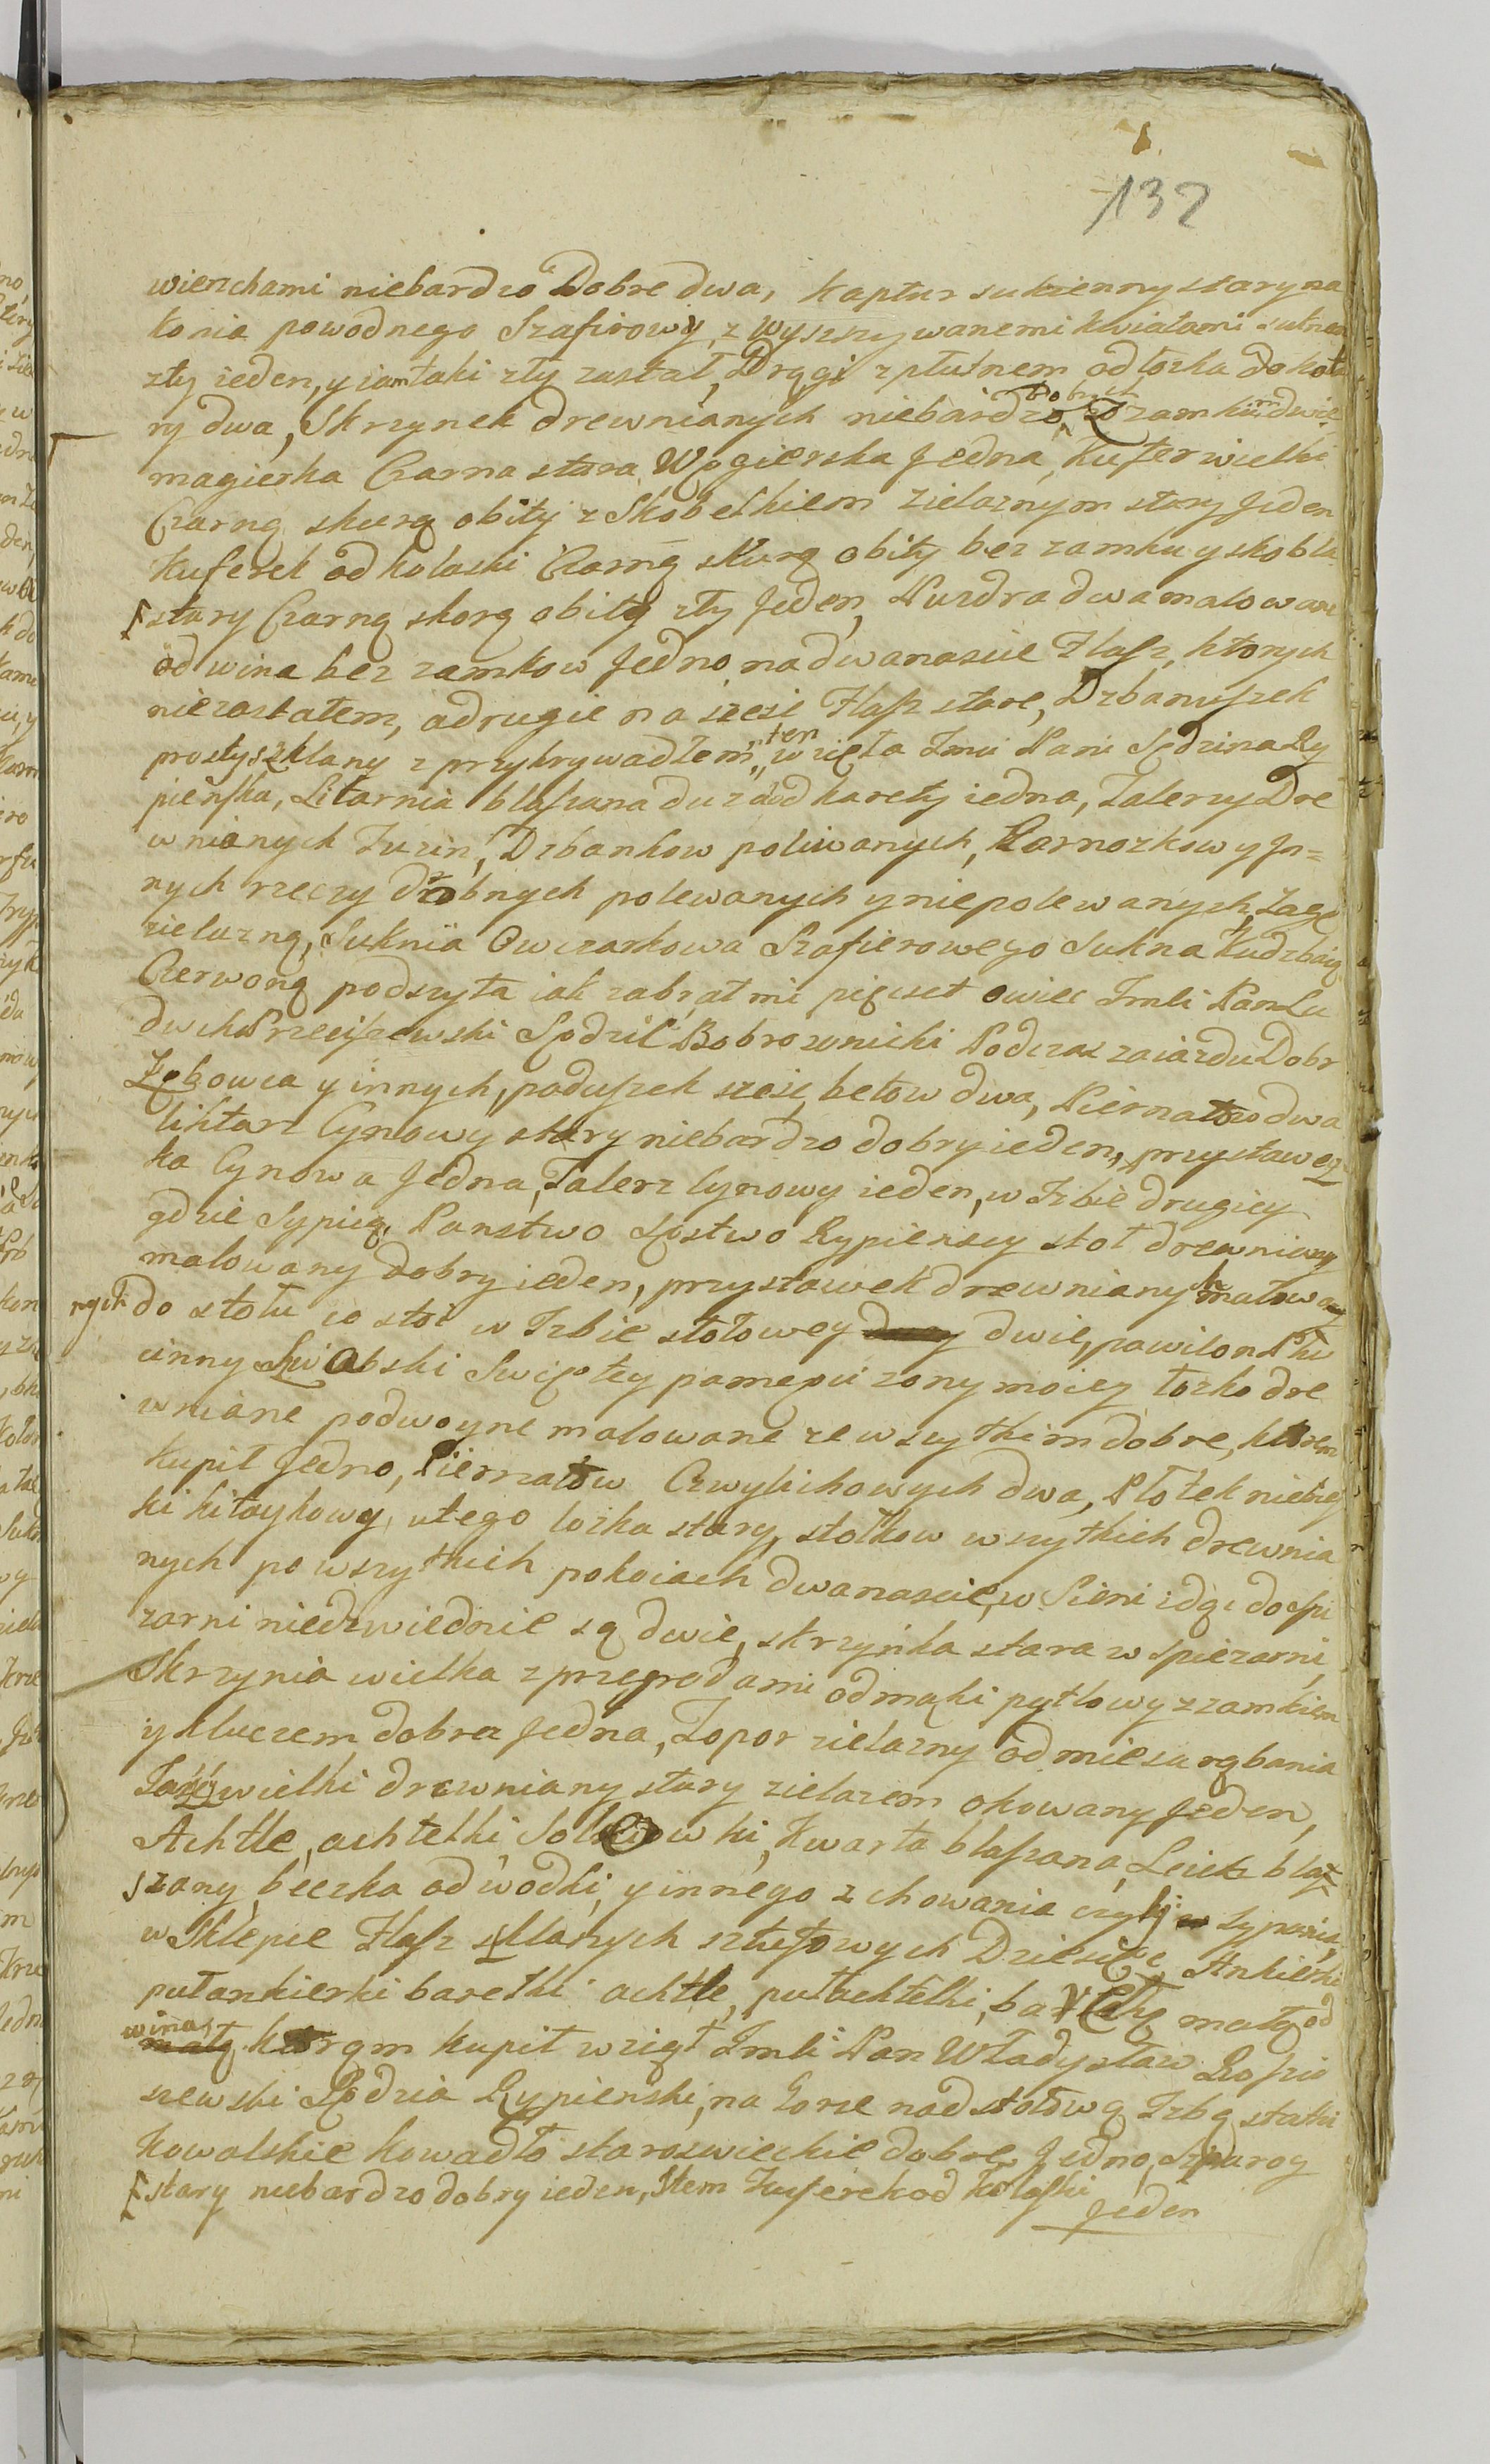 132
wierzchami niebardzo Dobre dwa, kaptur sukienny stary na
konia powodnego Szafirowy, z wyszszywanemi kwiatami sukna
zły ieden, y iam taki zły zastał, Drągi z płutnem od łozka do kota
ry dwa, Skrzynek drewnianych niebardzo dobrych Zzamkiem dwie
magierka Czarna stara Węgierska Jedna, Kufer wielki
Czarną skurą obity z Skobelkiem zielaznym stary Jeden
Kuferek od kolaski Czarną skurą obity bez zamku y skobla
stary Czarną skorą obity zły Jeden, Puzdra dwa malowane
od wina bez zamkow Jedno na dwanascie Flasz, ktorych
niezastałem, adrugie na szesc Flasz stare, Dzbanuszek
prosty szklany z przykrywadłem, ten wzięła Jmci Pani Sędzina Ry
pieńska, Litarnia blaszana duza od karety iedna, Talerzy Dre
wnianych Tuzin, Dzbankow poliwanych, Garnozkow y In=
nych rzeczy drobnych polewanych y niepolewanych,
zielazną, Suknia Owczarkowa Szafierowego Sukna Kudzbaią
Czerwoną podszyta iak zabrał mi pięcset owiec Jmci Pan Lu
dwik Przeciszewski Sędzic Bobrownicki Podczas zaiazdu Dobr
y innych, poduszek szesc, betow dwa, Piernatow dwa
lichtarz Cynowy stary niebardzo dobry ieden, przystawecz
ka Cynowa Jedna, Talerz Cynowy ieden, w Izbie drugiey
gdzie Sypiią Panstwo Sęstwo Rypienscy stoł drewniany
malowany dobry ieden, przystawek drewnianych malowa
nych do stołu co stoi w Izbie stołowey dwie, pawilon Płu
cinny Swiętey pamęci zony moiey łozko dre
wniane podwoyne malowane ze wszytkim dobre, ktorem
kupił Jedno, Piernatow Cwylichowych dwa, Płotek niebies
ki kitaykowy, u tego łozka stary, stołkow wszytkich drewnia
nych po wszytkich pokoiach dwanascie, w Sieni idąc do spi
zarni niedzwiednie są dwie, skrzynka stara w spiezarni,
Skrzynia wielka z przegrodami od mąki pytlowy z zamkiem
y kluczem dobra Jedna, Topor zielazny od miesa rąbania
wielki drewniany stary zielazem okowany Jeden,
Achtle, achtelki, Kwarta blaszana, Leiek blasz
szany, beczka od wodki, y innego zchowania czyli sypania,
w Sklepie Flasz szklanych sztufowych Dziesięc, Ankierki
pułankierki baryłki achtle, pułachtelki, baryłkę małą od
wina, ktorąm kupił wziął Jmci Pan Władysław
szewski Sędzia Rypienski, na Gorze nad stołową Izbą statki
Kowalskie kowadło staroswieckie dobre Jedno,
stary niebardzo dobry ieden, Item Kuferek od kolaski
Jeden